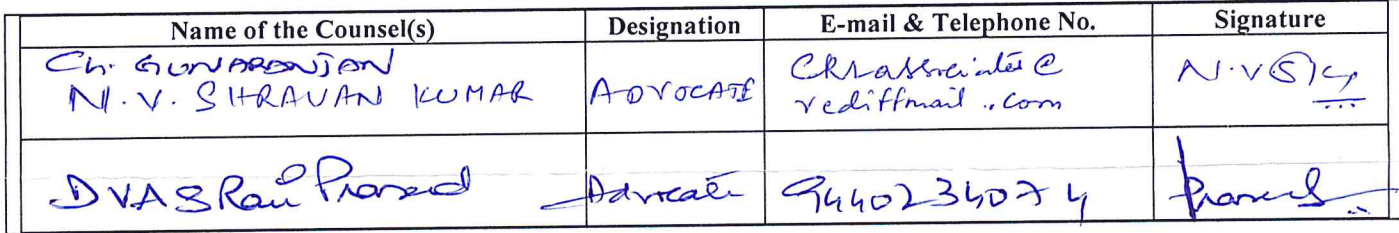 Name of the Counsel(s) Designation E-mail & Telephone No. Signature
Ch. GUNARANJAN
N.V. SHRAVAN KUMAR ADVOCATE
CKRassociates@
rediffmail.com
N.V.S.K
DVAS Ravi Prasad Advocate 9440234074 Prasad